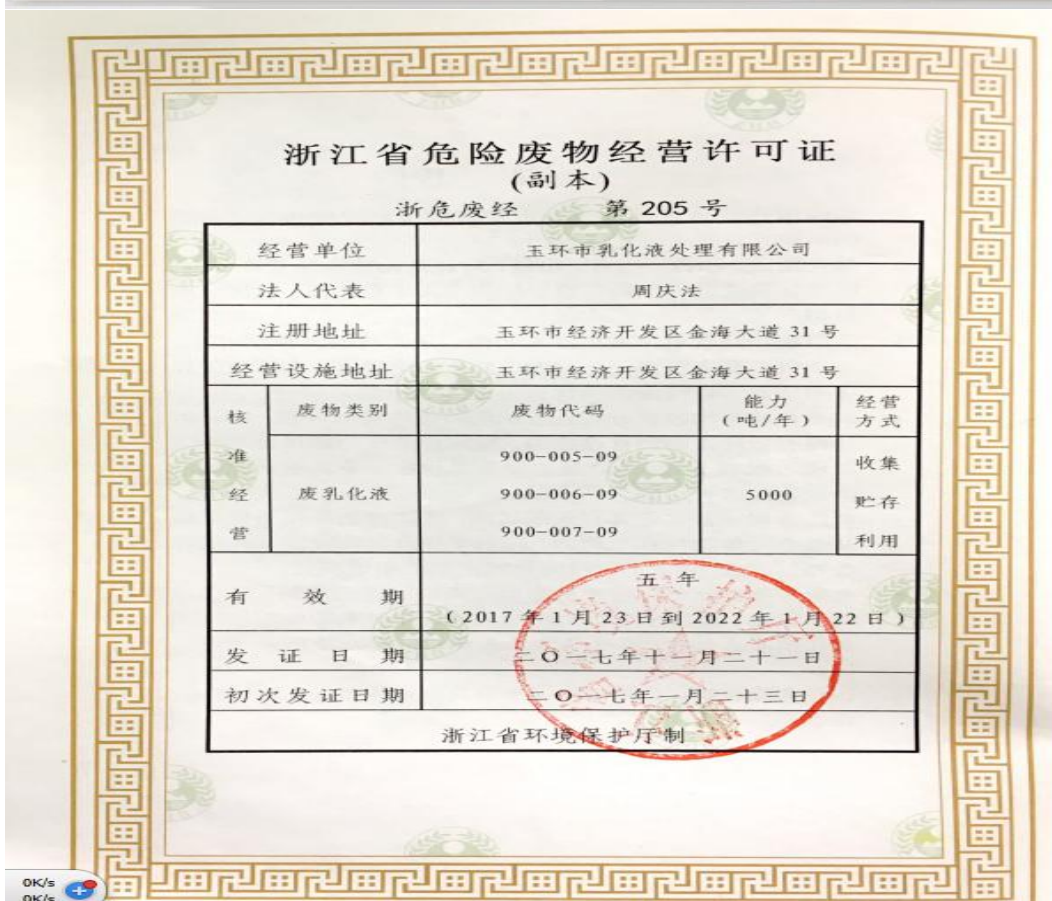 浙江省危险废物经营许可证
(副本)
浙危废经 第 205 号
经营单位 玉环市乳化液处理有限公司
法人代表 周庆法
注册地址 玉环市经济开发区金海大道 31 号
经营设施地址 玉环市经济开发区金海大道 31 号
核准经营 废物类别 废物代码 能力(吨/年) 经营方式
废乳化液 900-005-09 5000 收集
900-006-09 贮存
900-007-09 利用
有效期 五年
(2017 年 1 月 23 日到 2022 年 1 月 22 日)
发证日期 二〇一七年十一月二十一日
初次发证日期 二〇一七年一月二十三日
浙江省环境保护厅制
0K/s
0K/s